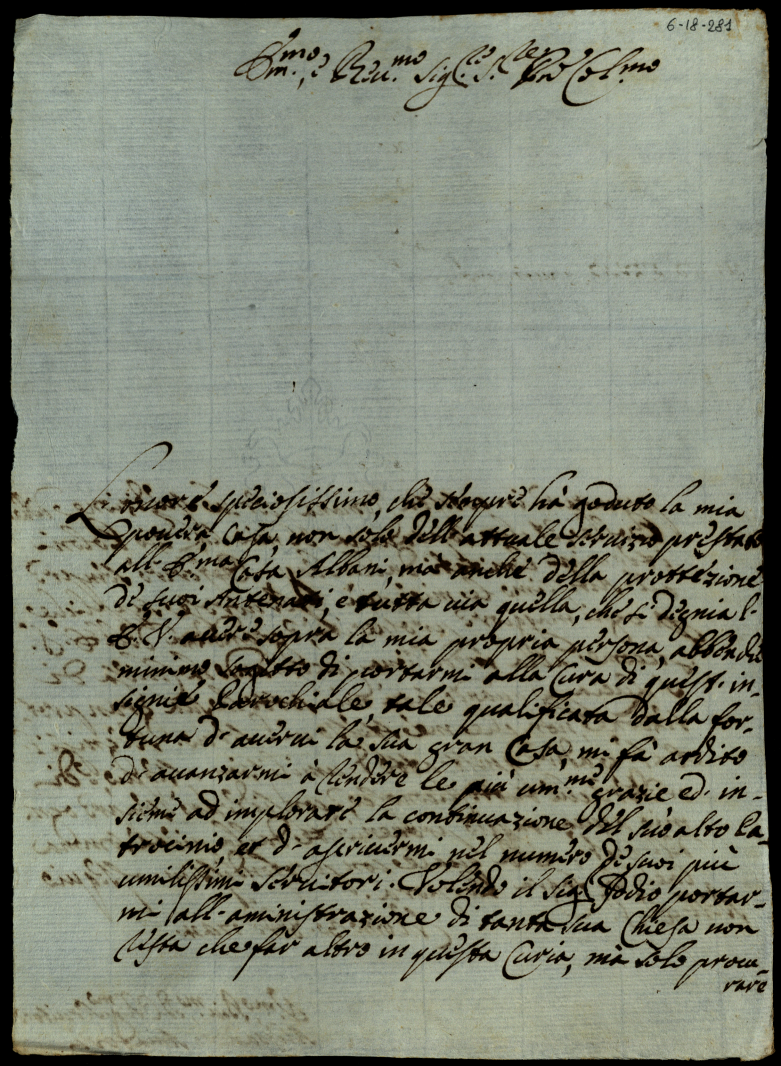 6-18-281
Em.mo, e Reu.mo Sig.re S.re P̃ron Col.mo
L'onore speciosissimo, che sempre hà goduto la mia
pouera Casa, non solo dell'attuale seruizio prestato
all'E.ma Casa Albani, mà anche della prottezione
de suoi Antenati, e tutta uia quella, che si degnia l'
E. V. auere sopra la mia propria persona, abbenche
minimo sogetto di portarmi alla Cura di quest'in-
signe Parochiale, tale qualificata dalla for-
tuna d'auerui la sua gran Casa, mi fà ardito
di auanzarmi à rendere le più um.me grazie ed in-
sieme ad implorare la continuazione del suo alto Pa-
trocinio et d'ascriuermi nel numero de suoi più
umilissimi seruitori. Volendo il Sig. Iddio portar-
mi all'aministrazione di tanta sua Chiesa non
resta che far altro in questa Curia, mà solo procu-
rare